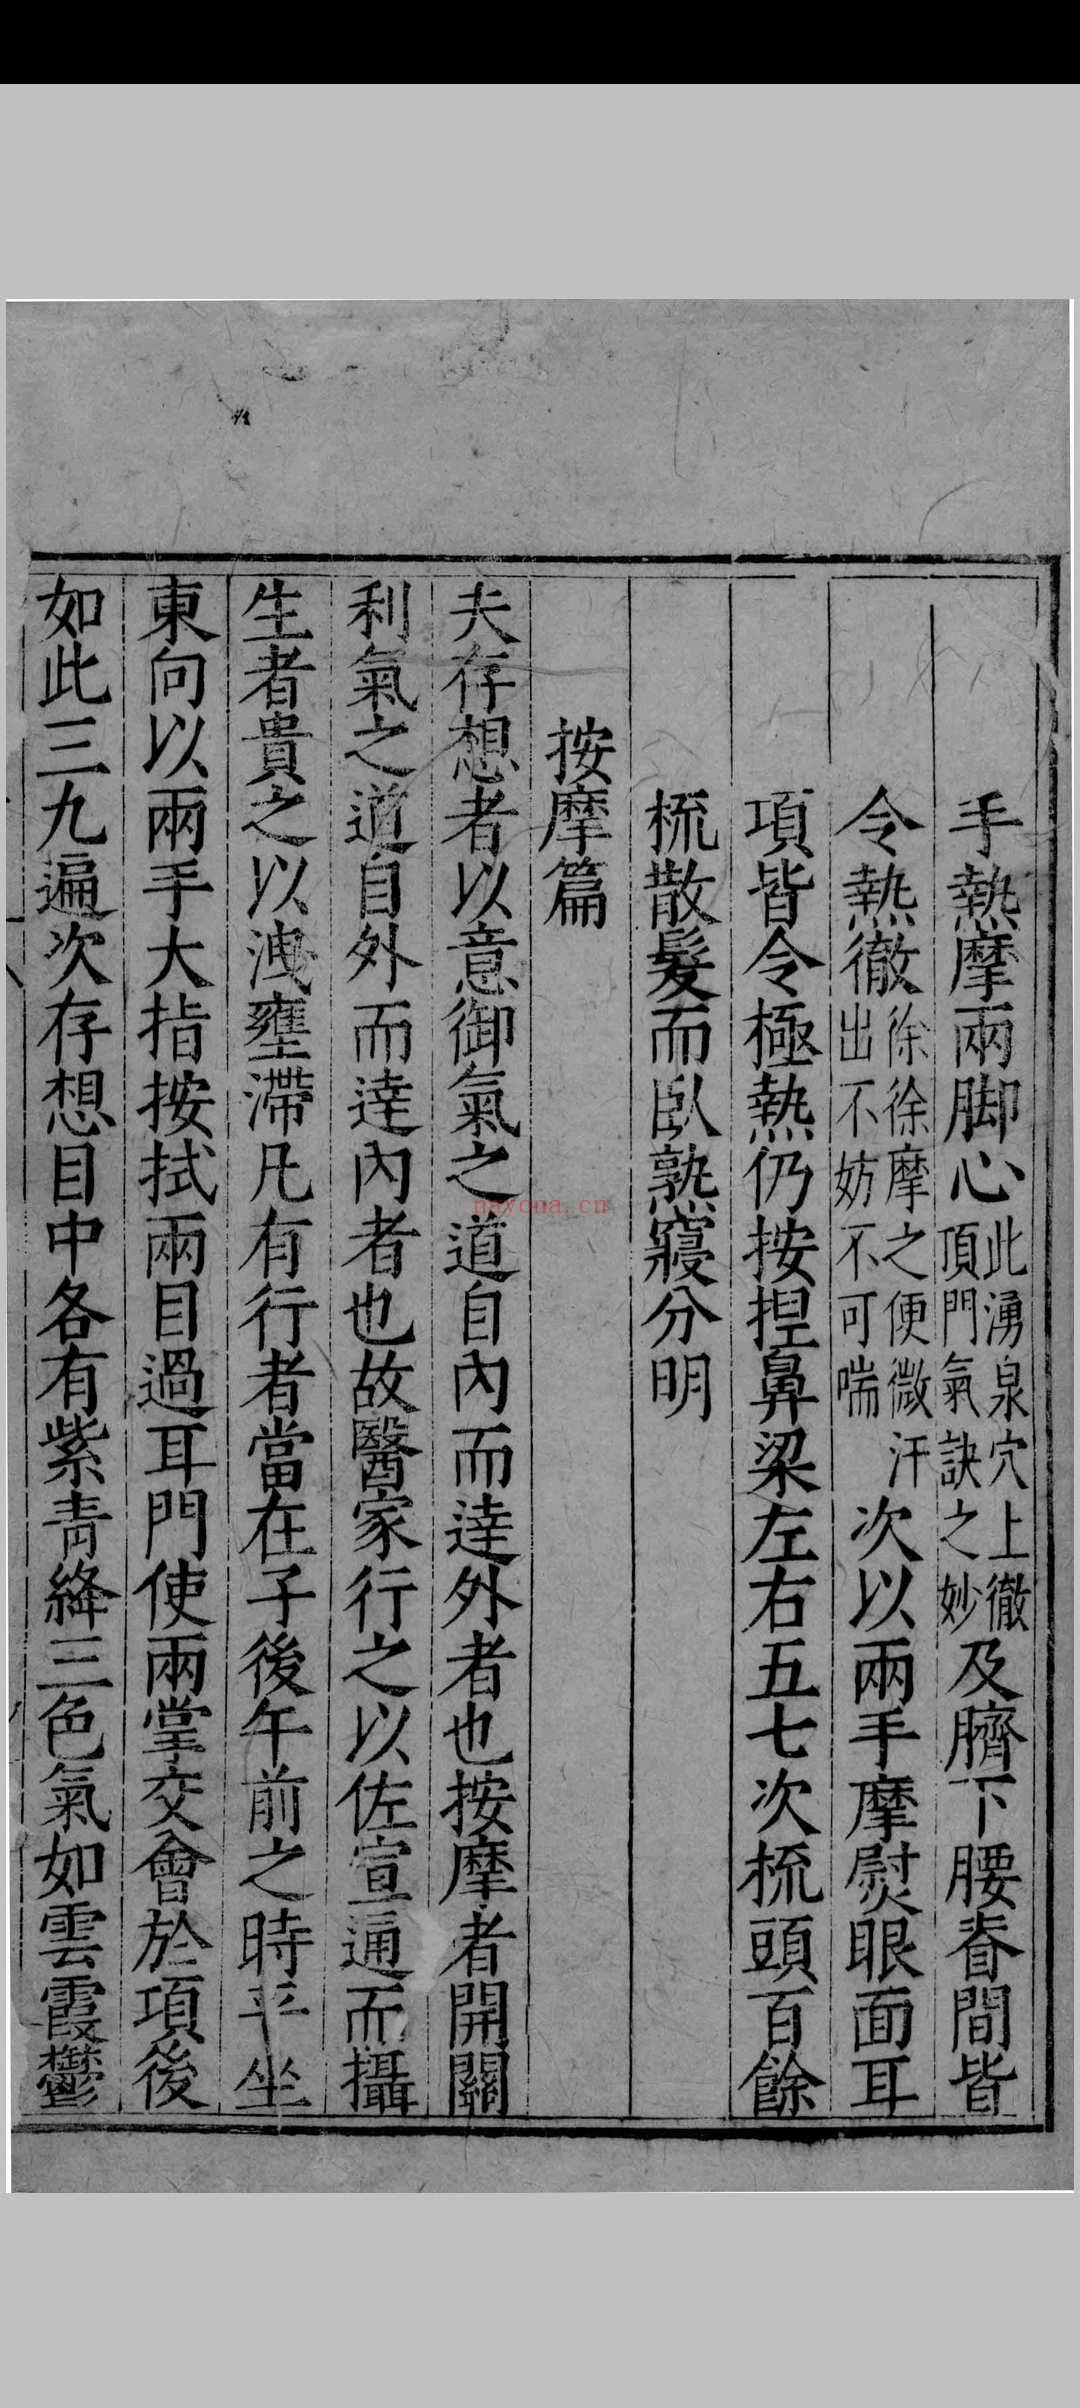 手熱摩兩脚心此湧泉穴上徹頂門氣訣之妙及臍下腰脊間皆
令熱徹徐徐摩之便微汗出不妨不可喘次以兩手摩熨眼面耳
項皆令極熱仍按捏鼻梁左右五七次梳頭百餘
梳散髮而臥熟寢分明
按摩篇
夫存想者以意御氣之道自內而達外者也按摩者開關
利氣之道自外而達內者也故醫家行之以佐宣通而攝
生者貴之以洩壅滯凡有行者當在子後午前之時平坐
東向以兩手大指按拭兩目過耳門使兩掌交會於項後
如此三九遍次存想目中各有紫青絳三色氣如雲霞鬱
nayona.cn